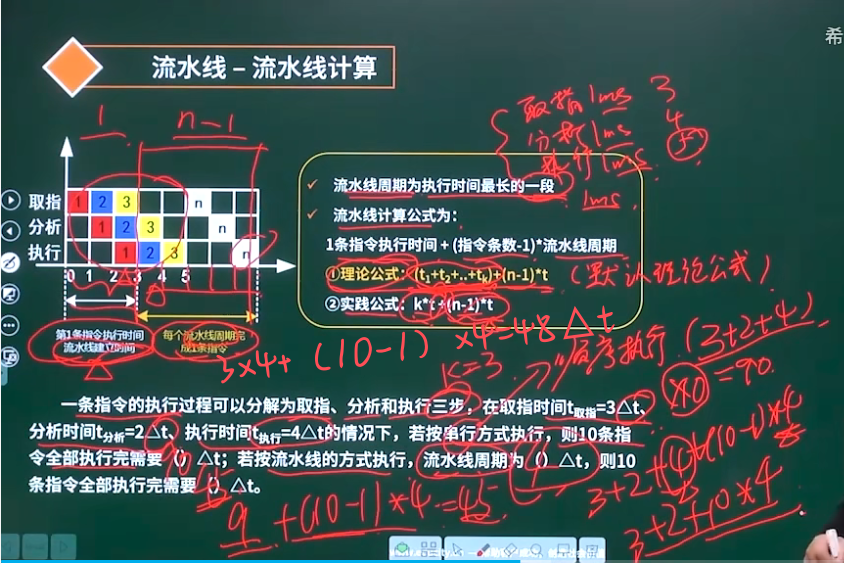 希
流水线 – 流水线计算
1
n-1
取指 1ms 3
分析 1ms 4
执行 1ms 5
1ms
取指 1 2 3 n
分析 1 2 3 n
执行 1 2 3 n
0 1 2 3 4 5
第1条指令执行时间
流水线建立时间
每个流水线周期完
成1条指令
✓ 流水线周期为执行时间最长的一段
✓ 流水线计算公式为：
1条指令执行时间 + (指令条数-1)*流水线周期
①理论公式：(t1+t2+..+tk)+(n-1)*t
(默认理论公式)
②实践公式：k*t +(n-1)*t
3×4+ (10-1) ×4=48△t
k=3
顺序执行 (3+2+4)
×10=90
一条指令的执行过程可以分解为取指、分析和执行三步，在取指时间t取指=3△t、
分析时间t分析=2△t、执行时间t执行=4△t的情况下，若按串行方式执行，则10条指
令全部执行完需要（）△t；若按流水线的方式执行，流水线周期为（）△t，则10
条指令全部执行完需要（）△t。
90
4
45
9 +(10-1)*4=45
3+2+(4)+(10-1)*4
3+2+10*4